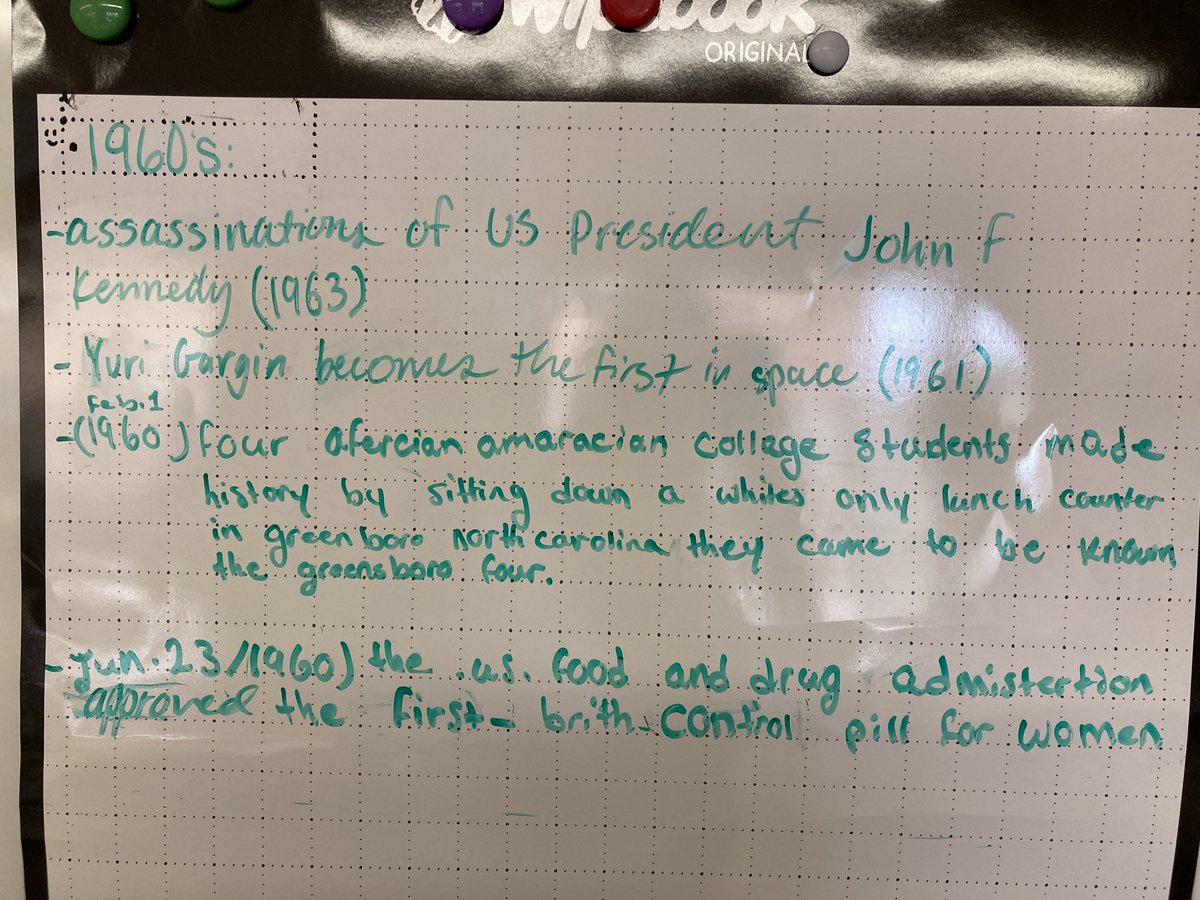 Wipebook
ORIGINAL
1960's:
-assassinations of US President John F
Kennedy (1963)
- Yuri Gargin becomes the first in space (1961)
Feb.1
-(1960) four afercian amaracian college students made
history by sitting down a whites only lunch counter
in greenboro north carolina they came to be known
the greensboro four.
- jun.23/1960) the .u.s. food and drug admistertion
approved the first- brith-control pill for women